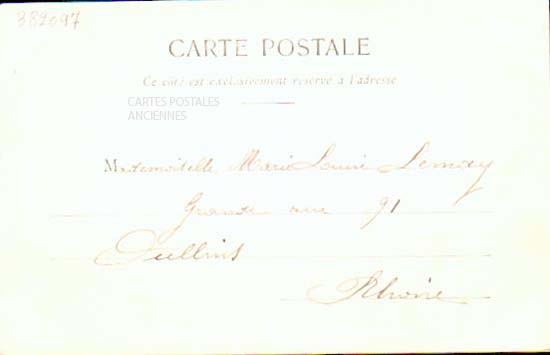 382097
CARTE POSTALE
Ce côté est exclusivement réservé à l'adresse
CARTES POSTALES
ANCIENNES
Mademoiselle Marie Louise Lemoy
Grande rue 91
Oullins
Rhône